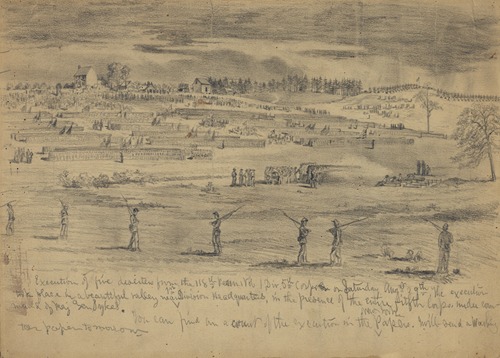 Execution of five deserters from the 118th Penn Vol. 1 Div. 5th Corps on Saturday Aug. 29th. the execution
took place in a beautiful valley near Division Headquarters, in the presence of the entire Fifth Corps under com
of Maj Gen Sykes.
New York
You can find an account of the execution in the Papers. Will send a Washin
ton paper to-morrow